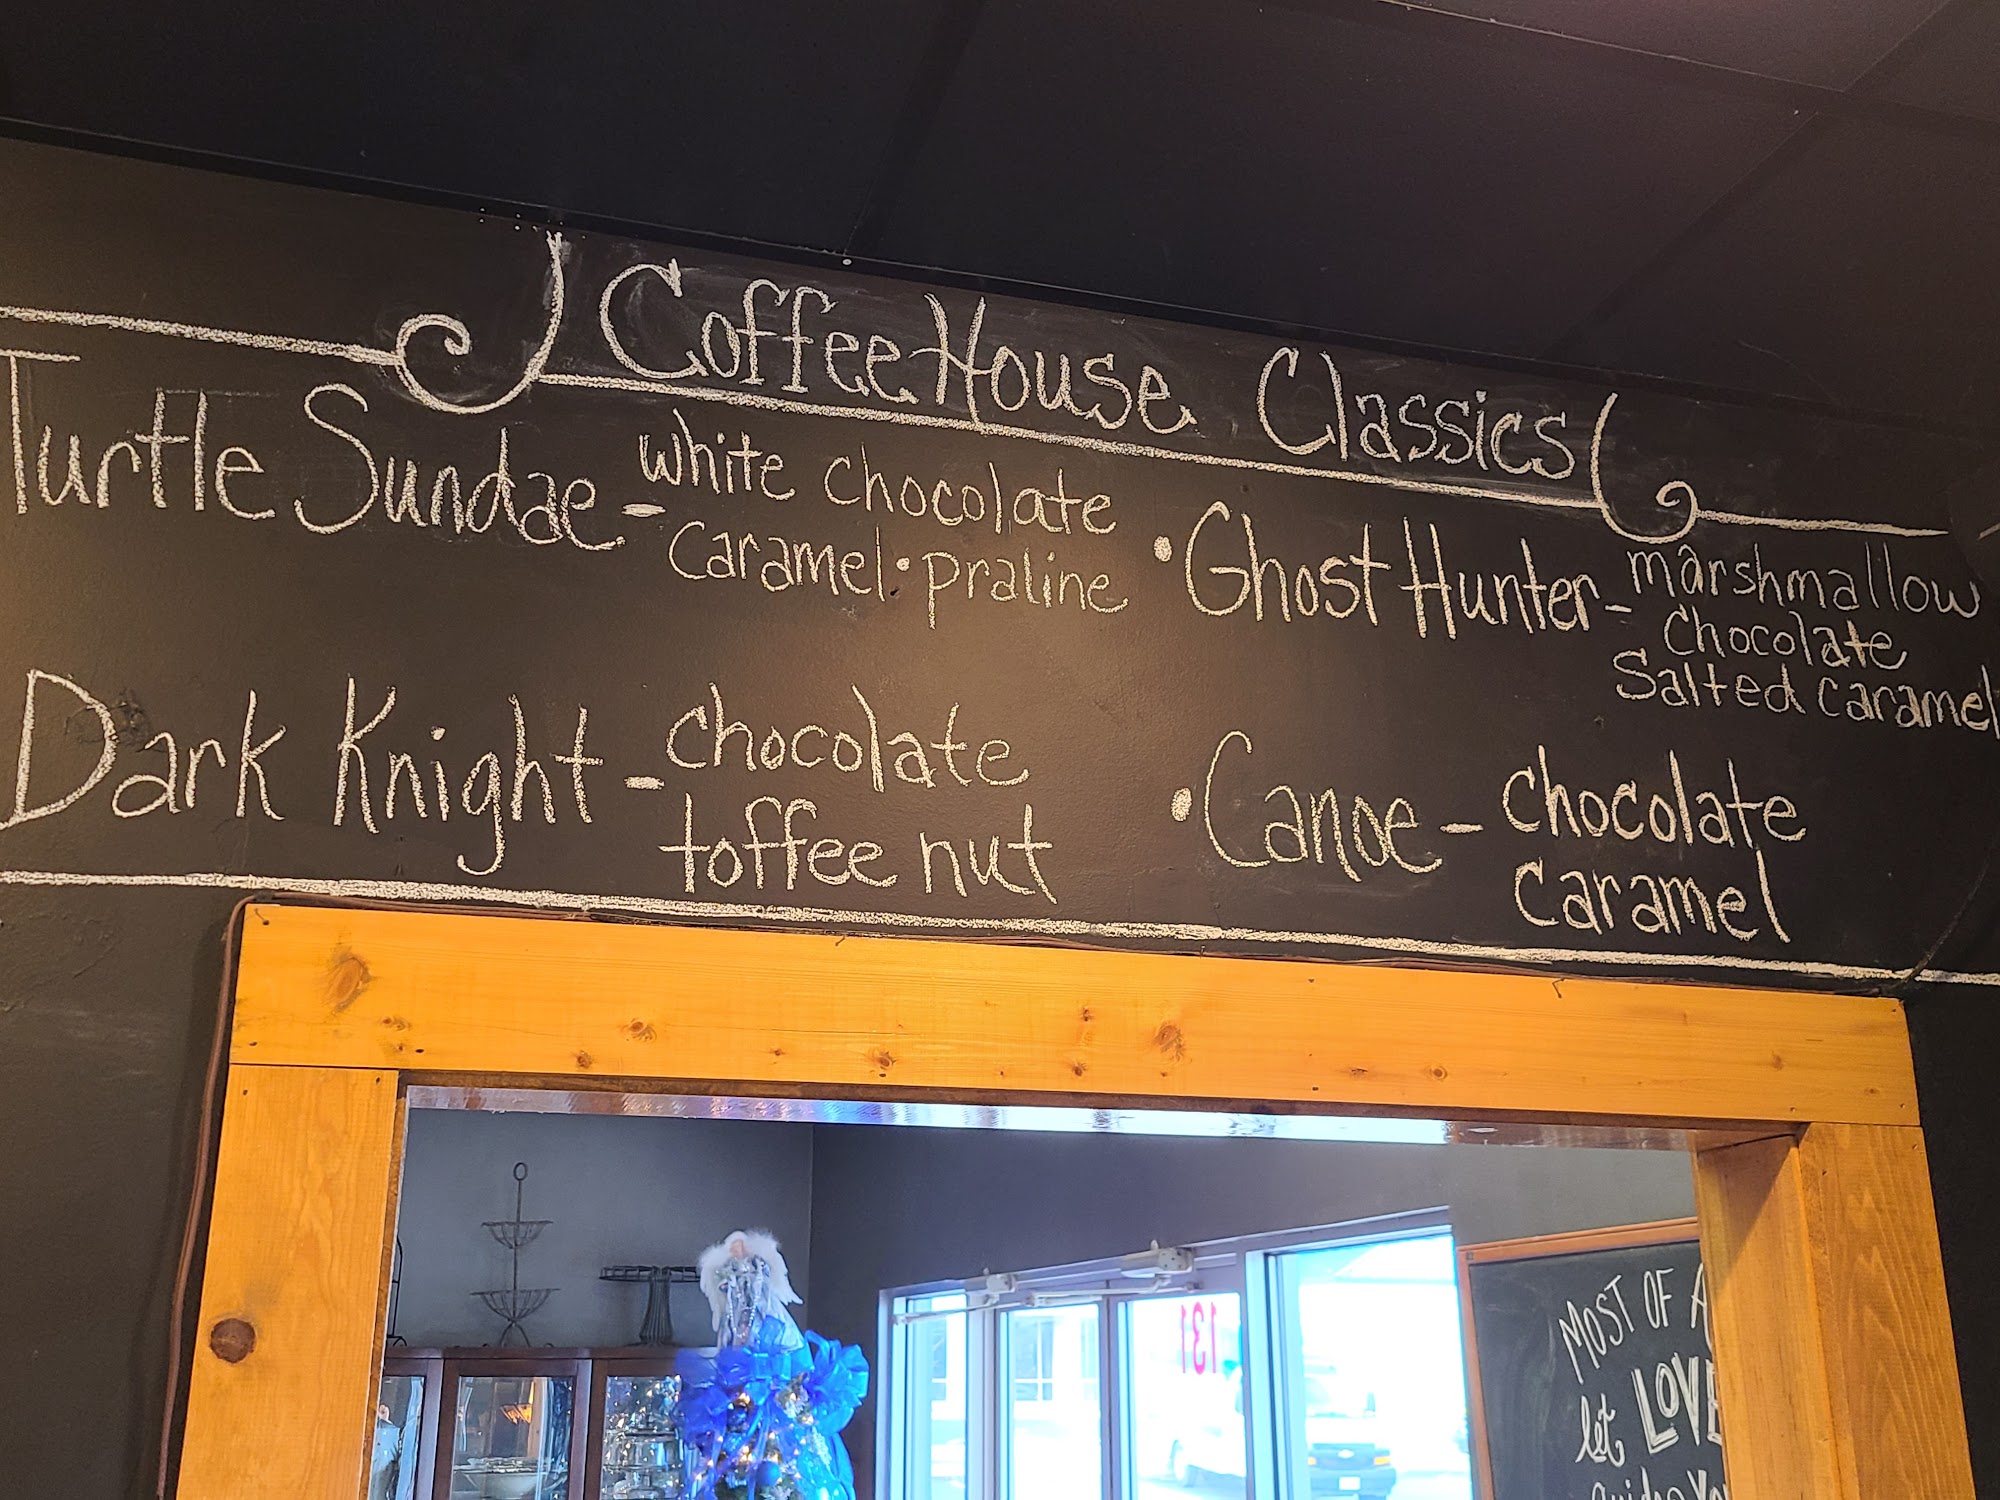 Coffee House Classics
Turtle Sundae - white chocolate
caramel • praline
• Ghost Hunter - marshmallow
chocolate
Salted caramel
Dark Knight - chocolate
toffee nut
• Canoe - chocolate
caramel
131
MOST OF A
let LOVE